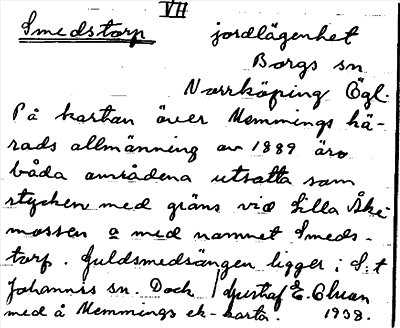 VII
Smedstorp jordlägenhet
Borgs sn
Norrköping Ögl.
På kartan över Memmings hä-
rads allmänning av 1889 äro
båda områdena utsatta som
stycken med gräns vid Lilla Åke
mossen o med namnet Smeds-
torp. Guldsmedsängen ligger i S:t
Johannis sn. Dock / Gustaf E.
med å Memmings ek. karta. 1938.